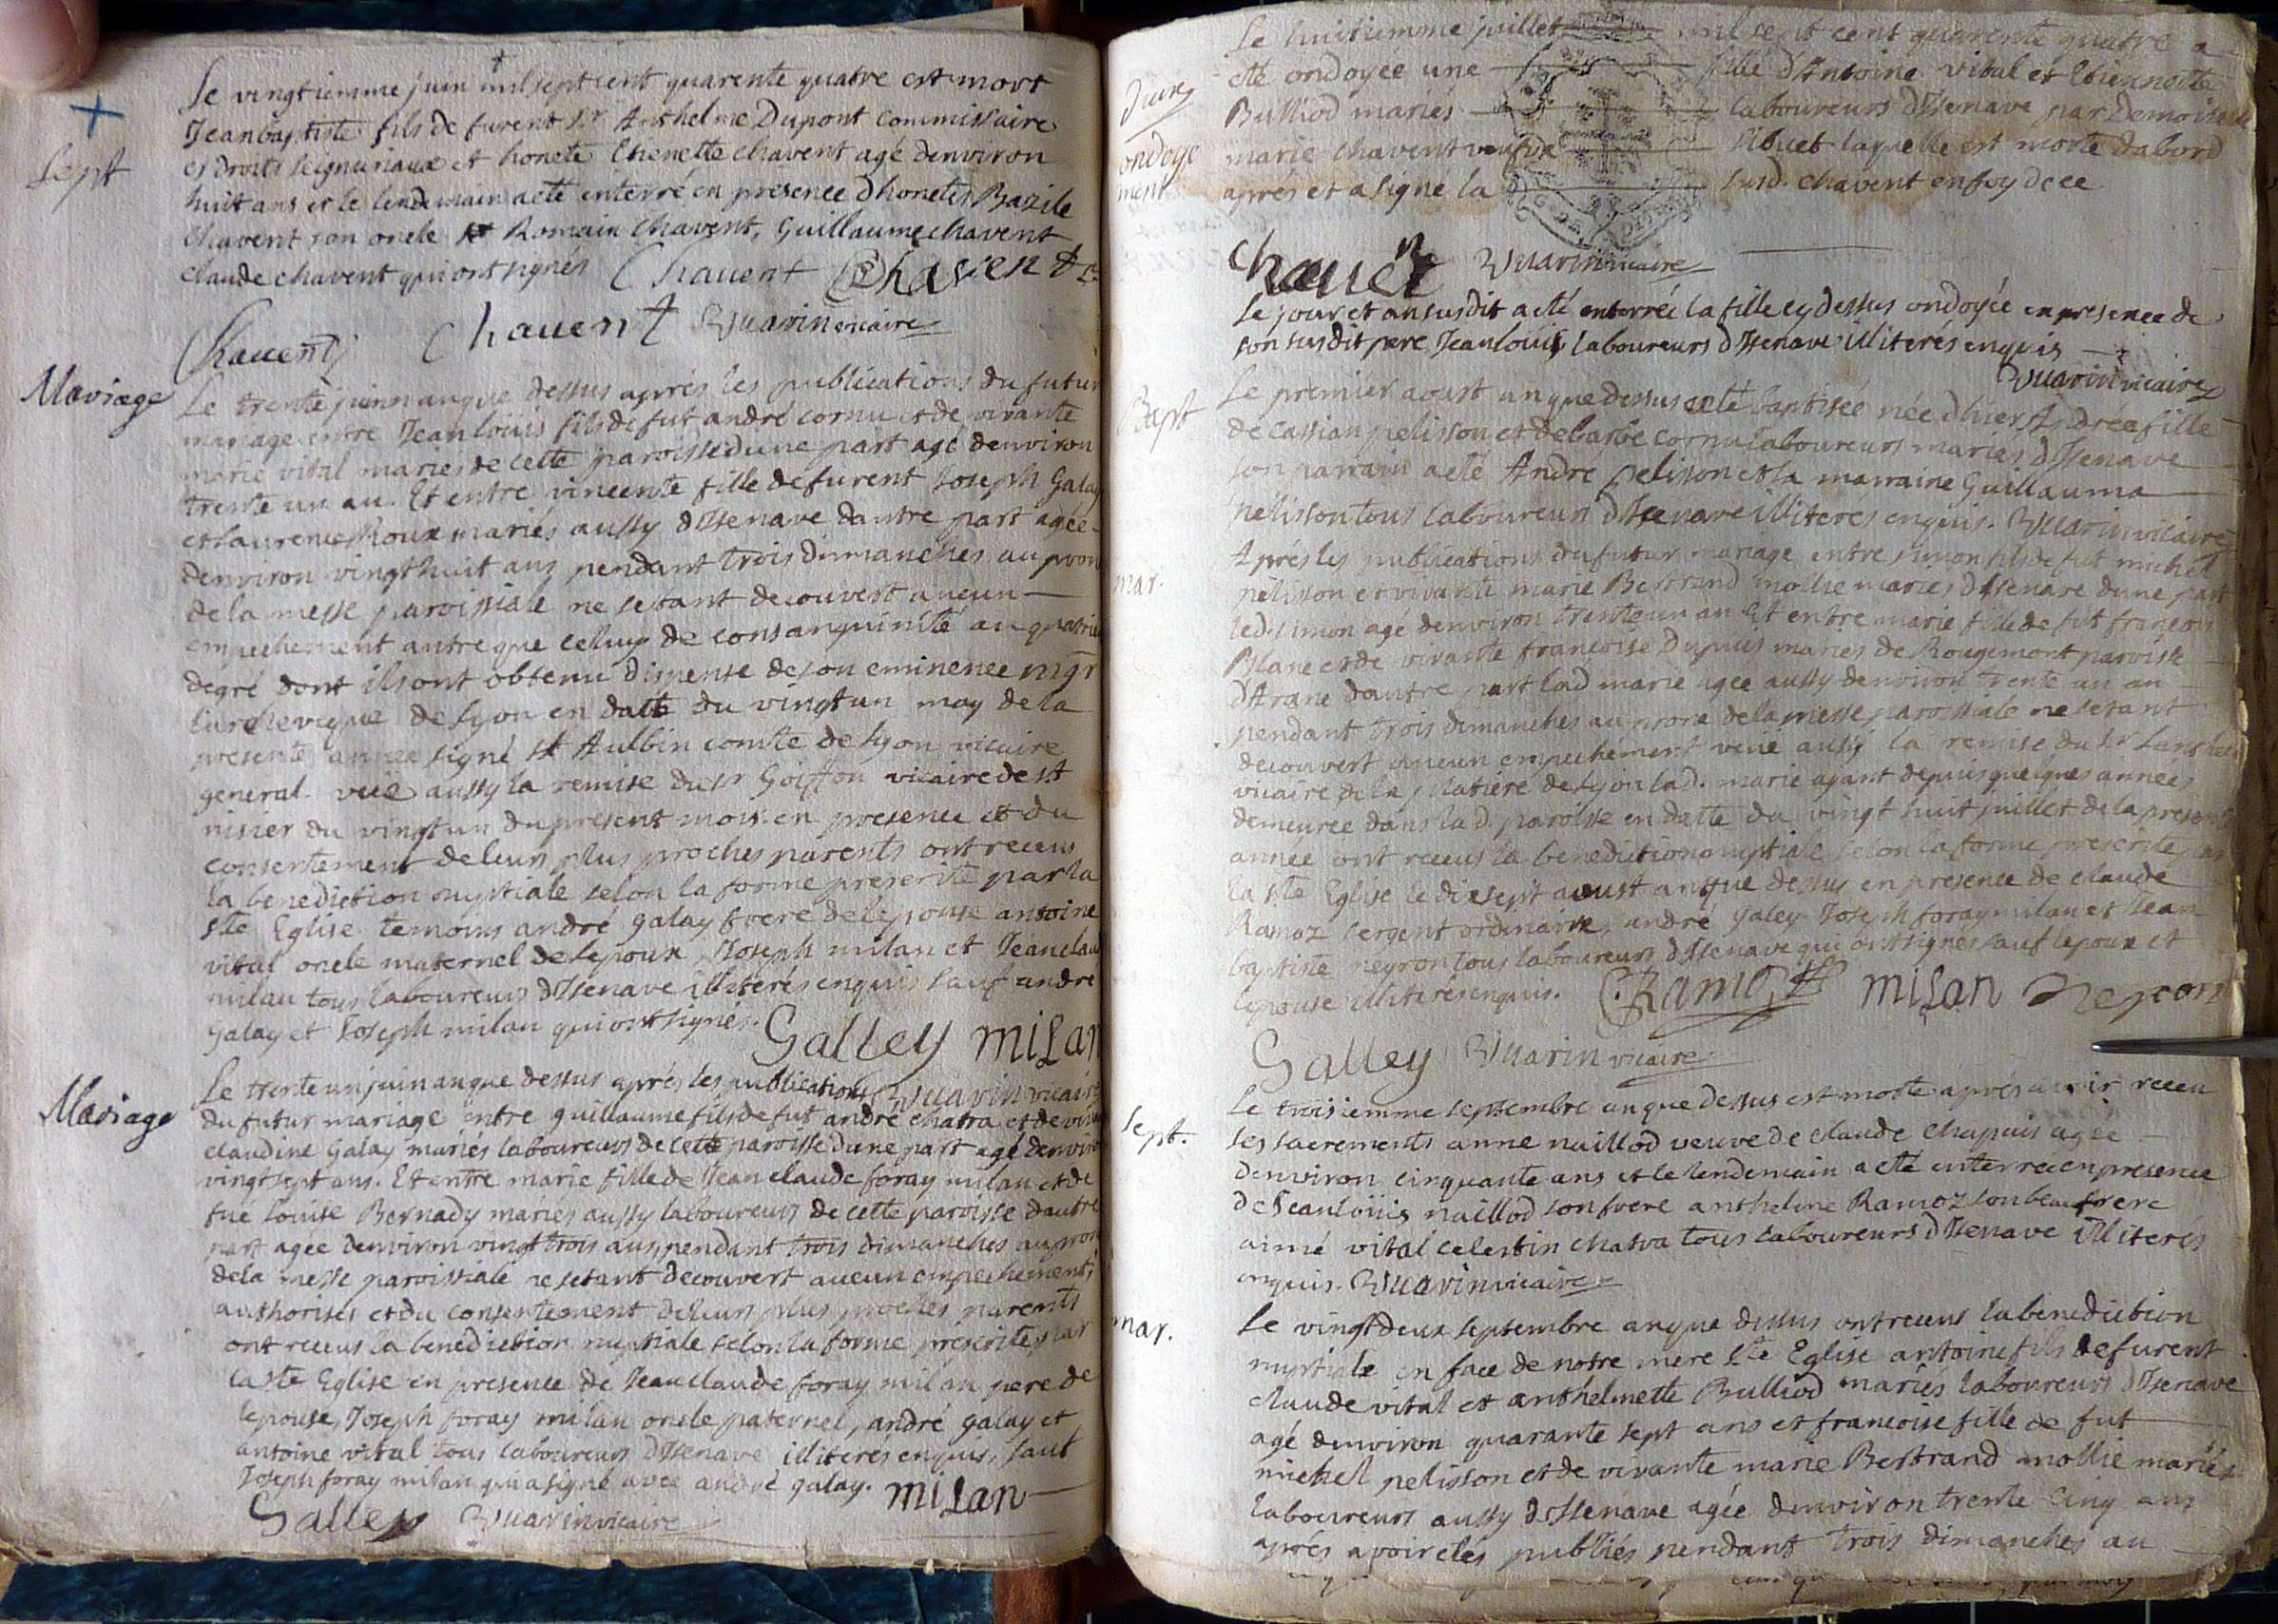 Le vingtiemme juin mil sept cent quarente quatre est mort
Jean baptiste fils de furent Sr Anthelme Dupont Commissaire
es droits seigneuriaux et honete Etienette chavent agé denviron
Sept
huit ans et le lendemain a eté enterré en presence dhonetes Bazile
Chavent son oncle Romain Chavent, Guillaume chavent
claude chavent qui ont signés Chauent Chavent
Chauent Chauent Vuarin vicaire
Mariage
Le trente juin an que dessus aprés les publications du futur
mariage entre Jean loüis fils de fut andré cornu et de vivante
marie vital mariés de cette paroisse dune part agé denviron
trente un an. Et entre vincente fille de furent Joseph Galay
et laurence Roux mariés aussy dIsenave dautre part agée
denviron vingt huit ans pendant trois dimanches au prone
de la messe paroissiale ne setant decouvert aucun
empechement autre que celuy de consanguinité au quatrie
degré dont ils ont obtenu dispense de son eminence mgr
larcheveque de Lyon en datte du vingt un may de la
presente année signé st Aulbin comte de Lyon vicaire
general. veüe aussy la remise du sr Goiffon vicaire de st
nisier du vingt un du present mois en presence et du
consentement de leurs plus proches parents ont receus
la benediction nuptiale selon la forme prescrite par la
ste Eglise temoins andré galay frere de lepouse antoine
vital oncle maternel de lepoux, Joseph milan et Jean clau
milan tous laboureurs dIsenave illiterés enquis sauf andre
Galay et Joseph milan qui ont signés. Galley milan
Vuarin vicaire
Mariage
Le trente un juin an que dessus aprés les publications
du futur mariage entre guillaume fils de fut andré chatra et de viva
claudine Galay mariés laboureurs de cette paroisse dune part agé denviron
vingt sept ans. Et entre marie fille de Jean claude foray milan et de
fue loüise Bernady mariés aussy laboureurs de cette paroisse dautre
part agée denviron vingt trois ans, pendant trois dimanches au prone
de la messe paroissiale ne setant decouvert aucun empechement,
authorises et du consentement de leurs plus proches parents
ont receus la benediction nuptiale selon la forme prescrite par
la ste Eglise en presence de Jean claude foray milan pere de
lepouse, Joseph foray milan oncle paternel, andré galay et
antoine vital tous laboureurs dIsenave illiterés enquis, sauf
Joseph foray milan qui a signé avec andré galay. milan
Galley Vuarin vicaire
Le huitiemme juillet mil sept cent quarente quatre a
eté ondoyée une fille dAntoine vital et Etiennette
Bulliod mariés laboureurs dIsenave par Demoiselle
ondoye
ment
marie Chavent veufve laquelle est morte dabord
aprés et a signé la susd. chavent en foy de ce
Chauent Vuarin vicaire
Le jour et an susdit a eté enterrée la fille cy dessus ondoyée en presence de
son susdit pere, Jean louis, laboureurs dIsenave illiterés enquis
Vuarin vicaire
Bapt
Le premier aoust an que dessus a eté baptisée née dhier Andréa fille
de cassian pelisson et de barbe cornu laboureurs mariés dIsenave
son parrain a eté Andre Pelisson et sa marraine Guillauma
pelisson tous laboureurs dIsenave illiteres enquis. Vuarin vicaire
mar.
Aprés les publications du futur mariage entre simon fils de fut michel
pelisson et vivante marie Bertrand mollie maries dIsenave dune part
led. simon agé denviron trente un an Et entre marie fille de fut françois
et de vivante françoise Dupuis mariés de Rougemont paroisse
dArane dautre part lad marie agée aussy denviron trente un an
pendant trois dimanches au prone de la messe paroissiale ne setant
decouvert aucun empechement veüe aussy la remise du sr
vicaire de la platiere de Lyon lad. marie ayant depuis quelques années
demeurée dans lad. paroisse en datte du vingt huit juillet de la presente
année ont receus la benediction nuptiale selon la forme prescrite par
la ste Eglise le dixsept aoust an que dessus en presence de claude
Ramoz sergent ordinaire, andré galey Joseph foray milan et Jean
baptiste neyron tous laboureurs dIsenave qui ont signes sauf lepoux et
lepouse illiterés enquis. C. Ramoz milan
Galley Vuarin vicaire
Sept.
Le troisiemme septembre an que dessus est morte aprés avoir receu
les sacrements anne naillod veuve de claude Chapuis agée
denviron cinquante ans et le lendemain a eté enterrée en presence
de Jean loüis naillod son frere anthelme Ramoz son beau frere
aimé vital celestin chatra tous laboureurs dIsenave illiterés
enquis. Vuarin vicaire
mar.
Le vingt deux septembre an que dessus ont receus la benediction
nuptiale en face de notre mere ste Eglise antoine fils de furent
claude vital et anthelmette Bulliod mariés laboureurs dIsenave
agé denviron quarante sept ans et francoise fille de fut
michel pelisson et de vivante marie Bertrand mollie mariés
laboureurs aussy dIsenave agée denviron trente cinq ans
aprés avoir etés publiés pendant trois dimanches au